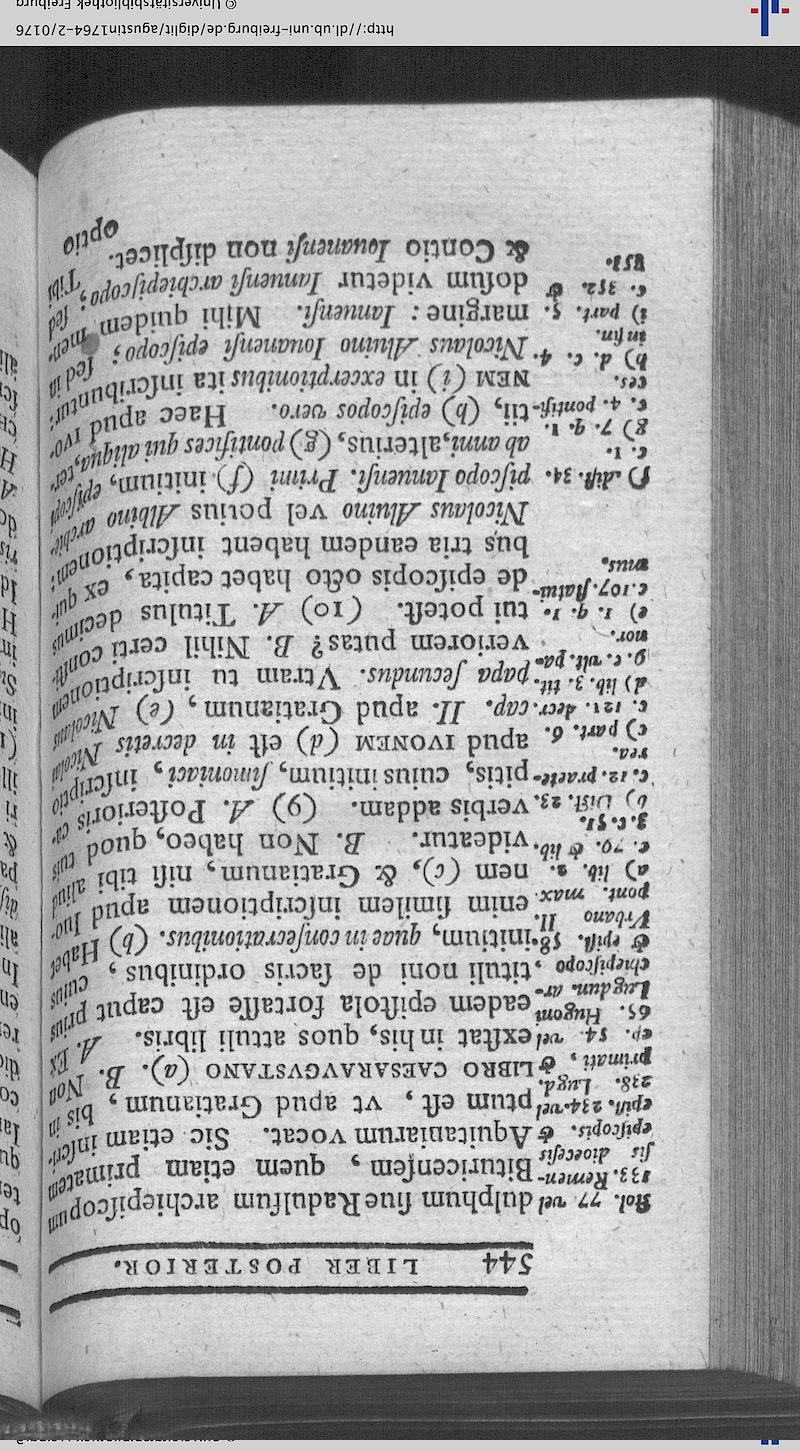 544 LIBER POSTERIOR.
dulphum ſiue Radulfum archiepiſcopum
Bituricenſem, quem etiam primatem
Aquitaniarum vocat. Sic etiam inſcri-
ptum eſt, vt apud Gratianum, bis in
LIBRO CAESARAVGVSTANO (a). B. Non
exſtat in his, quos attuli libris. A. Ex
eadem epiſtola fortaſſe eſt caput prius
tituli noni de ſacris ordinibus, cuius
initium, quae in conſecrationibus. (b) Habet
enim ſimilem inſcriptionem apud Iuo-
nem (c), & Gratianum, niſi tibi aliud
videatur. B. Non habeo, quod tuis
verbis addam. (9) A. Poſterioris ca-
pitis, cuius initium, ſimoniaci, inſcriptio
apud IVONEM (d) eſt in decretis Nicolai
cap. II. apud Gratianum, (e) Nicolaus
papa ſecundus. Vtram tu inſcriptionem
veriorem putas? B. Nihil certi conſti-
tui poteſt. (10) A. Titulus decimus
de epiſcopis octo habet capita, ex qui-
bus tria eandem habent inſcriptionem:
Nicolaus Aluino vel potius Albino archie-
piſcopo Ianuenſi. Primi (f) initium, epiſcopi
ab anni, alterius, (g) pontifices qui aliqua, ter-
tii, (h) epiſcopos vero. Haec apud IVO-
NEM (i) in excerptionibus ita inſcribuntur:
Nicolaus Aluino Iouanenſi epiſcopo; ſed in
margine: Ianuenſi. Mihi quidem men-
doſum videtur Ianuenſi archiepiſcopo; ſed
& Contio Iouanenſi non diſplicet. Tibi
optio
ſtol. 77 vel
133. Remen-
ſis dioeceſis
epiſcopis. &
epiſt. 234. vel
238. Lugd.
primati, &
ep. 54. vel
65. Hugoni
Lugdun. ar-
chiepiſcopo
& epiſt. 58.
Vrbano II.
pont. max.
a) lib. 2.
c. 70. & lib.
3. c. 51.
b) Diſt. 23.
c. 12. praete-
rea.
c) part. 6.
c. 121. decr.
d) lib. 3. tit.
9. c. vlt. pa-
nor.
e) 1. q. 1.
c. 107. ſtatui-
mus.
f) diſt. 34.
c. 1.
g) 7. q. 1.
c. 4. pontifi-
ces.
h) d. c. 4.
in fin.
i) part. 5.
c. 352. &
353.
http://dl.ub.uni-freiburg.de/diglit/agustin1764-2/0176
© Universitätsbibliothek Freiburg